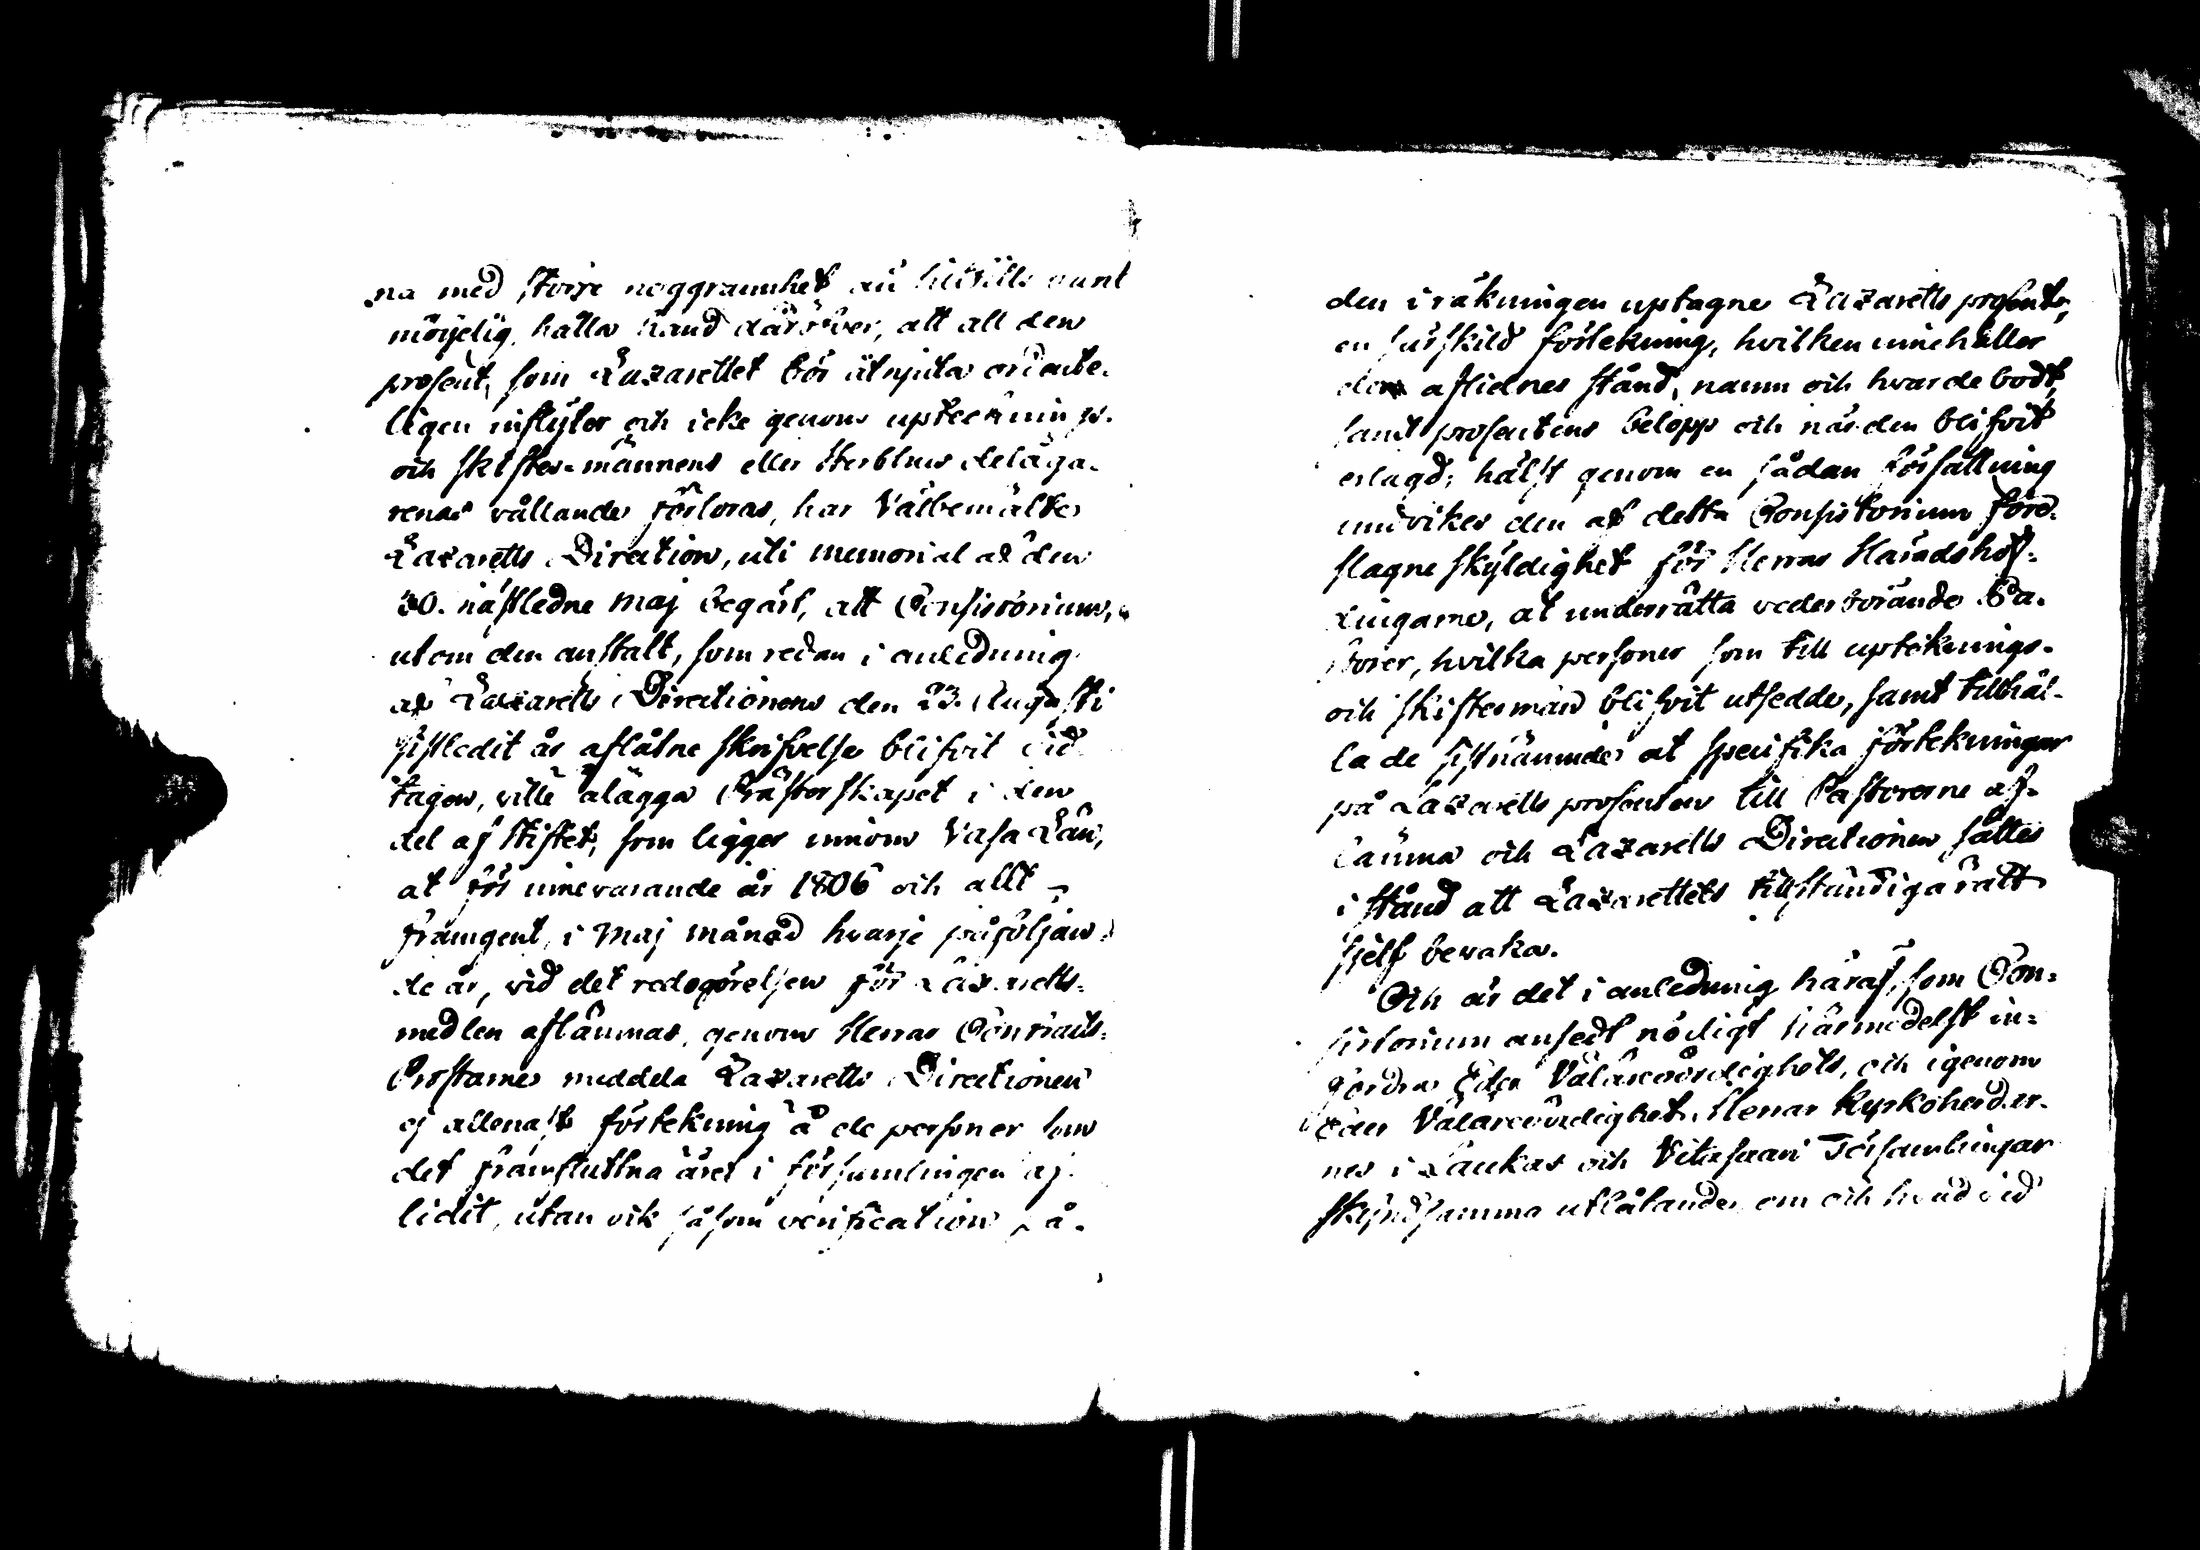 na med större noggrannhet än hittills varit
möijelig, hålla hand däröfver, att all den
prosent, som Lazarettet bör åtnjuta ordente-
ligen inflyter och icke genom uptecknings-
och skiftes-männens eller Sterbhus deläga-
renas vållande förloras, har Välbemälte
Lazaretts Direction, uti memorial af den
30. nästledne Maj begärt, att Consistorium,
utom den anstalt, som redan i anledning
af Lazaretts Directionens den 23. Augusti
sistledit år aflåtne skrifvelse blifvit vid
tagen, ville ålägga Prästerskapet i den
del af Stiftet, som ligger innom Vasa Län,
at för innevarande år 1806 och allt
framgent, i Maj månad hvarje påföljan-
de år, vid det redogörelsen för Lazaretts-
medlen aflämnas, genom Herrar Contracts-
Prostarne meddela Lazaretts Directionen
ej allenast förtekning å de personer som
det framflutna året i församlingen af-
lidit, utan ock såsom verification på
den i räkningen uptagne Lazaretts prosent,
en särskild förtekning, hvilken innehåller
den aflidnes stånd, namn och hvar de bodt,
samt prosentens belopp och när den blifvit
erlagd; hälst genom en sådan författning
undvikes den af detta Consistorium före-
slagne skyldighet för Herrar Häradshöf-
dingarne, at underrätta vederbörande Pa-
storer, hvilka personer som till upteknings-
och skiftesmän blifvit utsedde, samt tillhål-
la de sistnämnde at specifika förtekningar
på Lazaretts prosenten till Pastorerne af-
lämna och Lazaretts Directionen sättes
i stånd att Lazarettets tillständiga rätt
sjelf bevaka.
Och är det i anledning häraf, som Con-
sistorium ansedt nödigt härmedelst in-
fordra Eder Välärevördighets, och igenom
Eder Välärevördighet, Herrar Kyrkoherder-
nes i Laukas och Vitasaari Församlingar
skyndsamma utlåtande, om och hvad vid